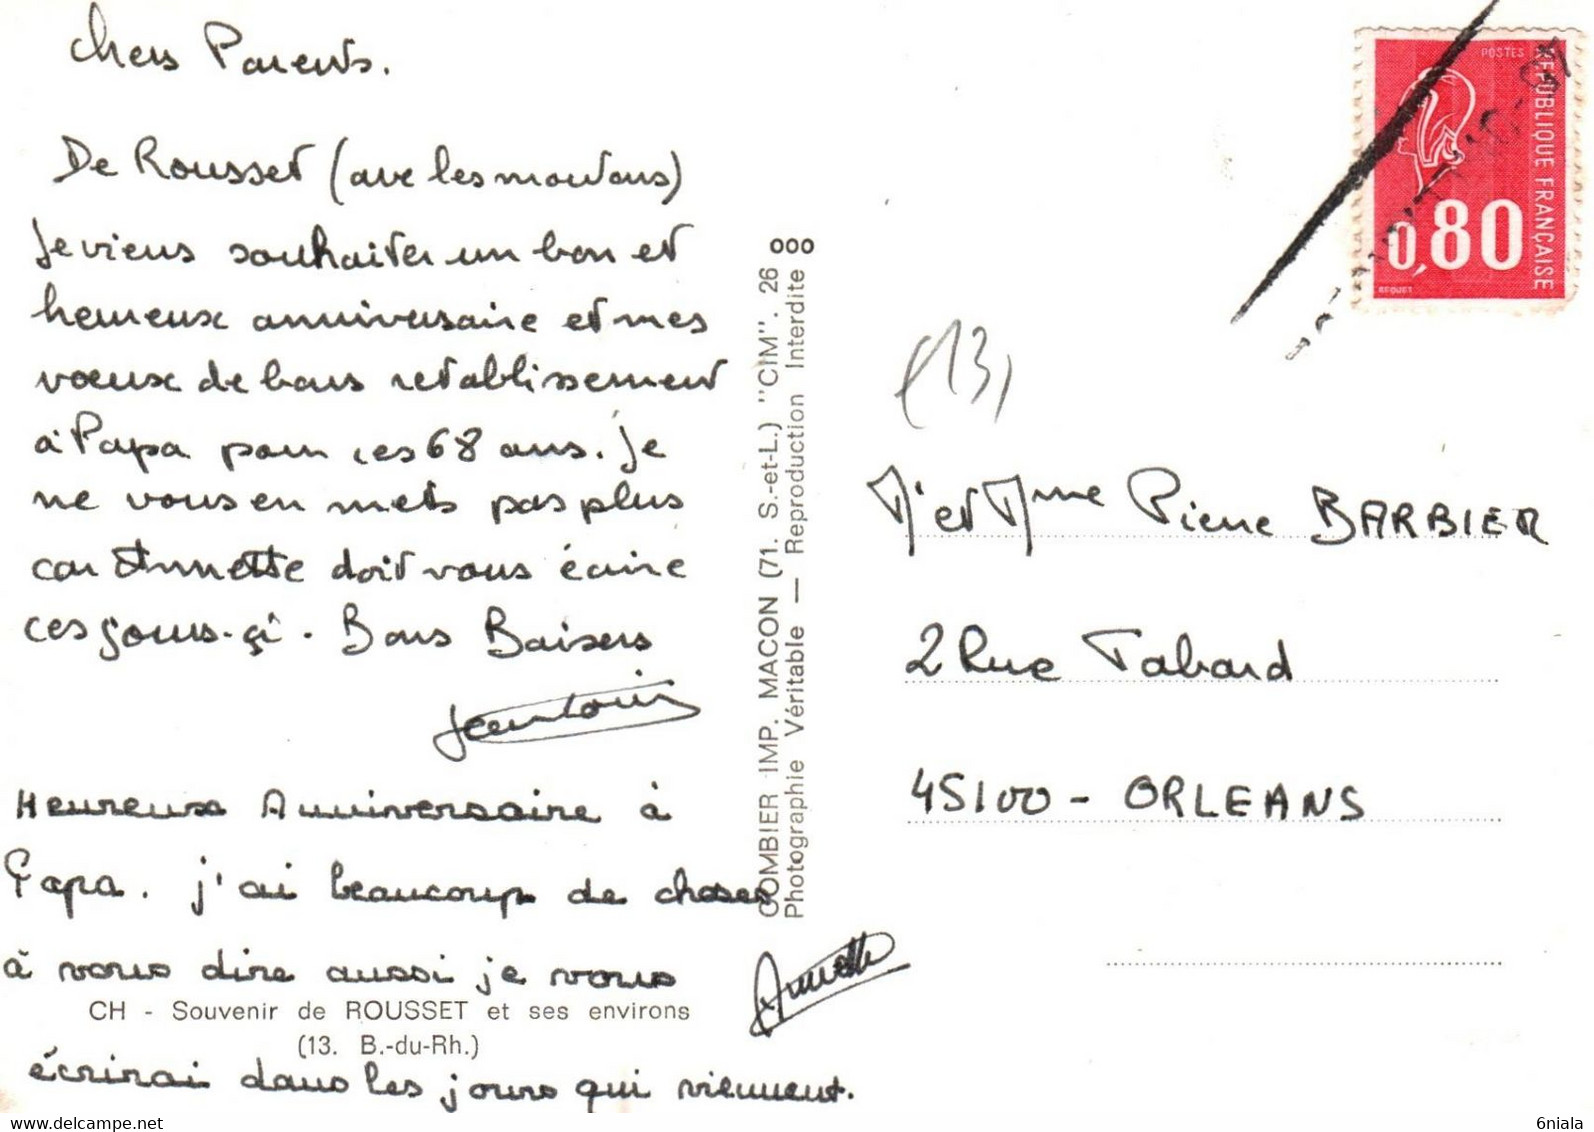 Chers Parents.
De Rousset (ave les moutons)
Je viens souhaiter un bon et
heureux anniversaire et mes
voeux de bons retablissement
à Papa pour ces 68 ans. Je
ne vous en mets pas plus
car Annette doit vous écrire
ces jours-çi. Bons Baisers
Jean Louis
Heureux Anniversaire à
Papa. j'ai beaucoup de choses
à vous dire aussi je vous
écrirai dans les jours qui viennent.
Annette
CH - Souvenir de ROUSSET et ses environs
(13. B.-du-Rh.)
COMBIER IMP. MACON (71. S.-et-L.) "CIM". 26 000
Photographie Véritable — Reproduction Interdite
POSTES
REPUBLIQUE FRANÇAISE
0,80
BEQUET
(13)
Mr et Mme Pierre BARBIER
2 Rue Tabard
45100 - ORLEANS
www.delcampe.net
6niala